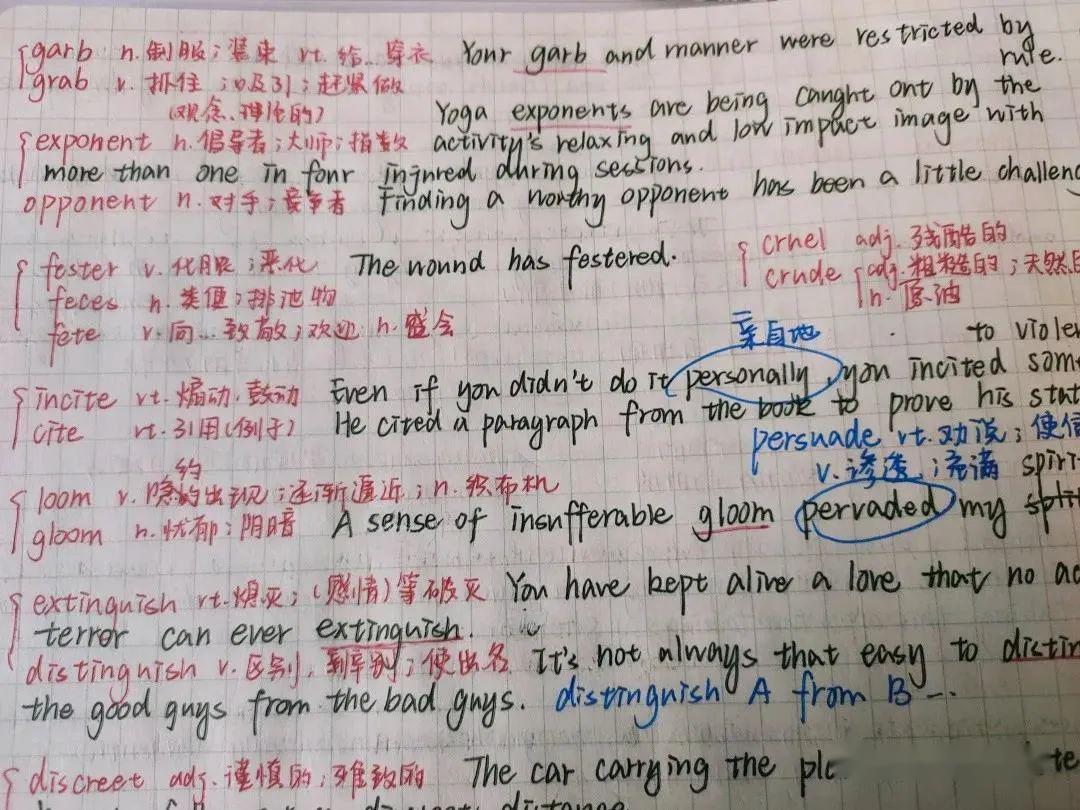 garb n. 制服；装束 vt. 给…穿衣 Your garb and manner were restricted by
rule.
grab v. 抓住；吸引；赶紧做
(观念、理论的) Yoga exponents are being caught out by the
exponent n. 倡导者；大师；指数 activity's relaxing and low impact image with
more than one in four injured during sessions.
opponent n. 对手；竞争者 Finding a worthy opponent has been a little challeng
fester v. 化脓；恶化 The wound has festered.
feces n. 粪便；排泄物
fete v. 向…致敬；欢迎 n. 盛会
cruel adj. 残酷的
crude adj. 粗糙的；天然
n. 原油
亲自地 to viole
incite vt. 煽动，鼓动 Even if you didn't do it personally, you incited som
cite vt. 引用(例子) He cited a paragraph from the book to prove his stat
persuade vt. 劝说；使信
v. 渗透；充满 spirit
约
loom v. 隐约出现；逐渐逼近；n. 织布机
gloom n. 忧郁；阴暗 A sense of insufferable gloom pervaded my
extinguish vt. 熄灭；(感情)等破灭 You have kept alive a love that no ac
terror can ever extinguish.
distinguish v. 区别，辨别；使出名 It's not always that easy to distin
the good guys from the bad guys. distinguish A from B
discreet adj. 谨慎的；雅致的 The car carrying the te
distance